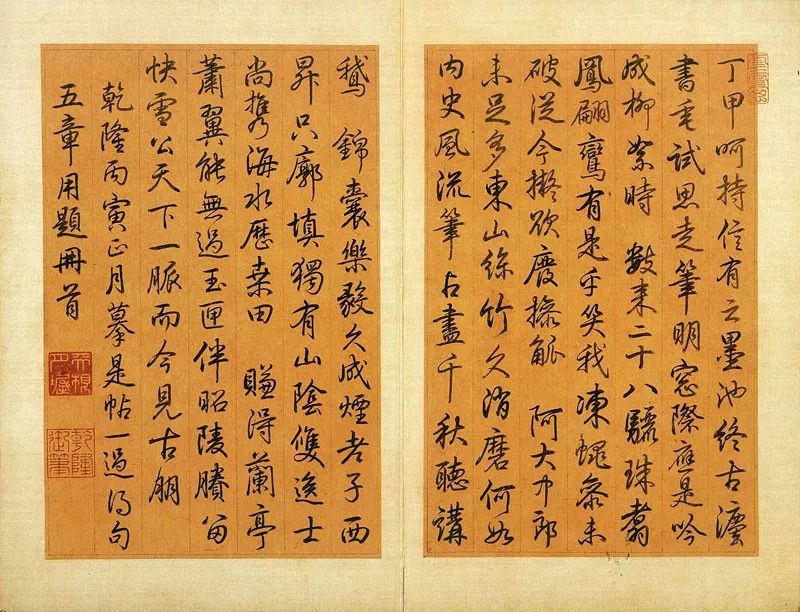 丁甲呵持信有之墨池終古
書垂試思走筆明窓際應是吟
成柳絮時 數來二十八驪珠翥
鳳翩鸞有是乎笑我凍蠅參未
破從今擬欲廢操觚 阿大中郎
未足多東山絲竹久消磨何如
內史風流筆占盡千秋聽講
鵝 錦囊樂毅久成煙老子西
昇只廓填獨有山陰雙逸士
尚攜海水歷桑田 賺得蘭亭
蕭翼能無過玉匣伴昭陵賸留
快雪公天下一脈而今見古朋
乾隆丙寅正月摹是帖一過得句
五章用題冊首
乾隆御筆